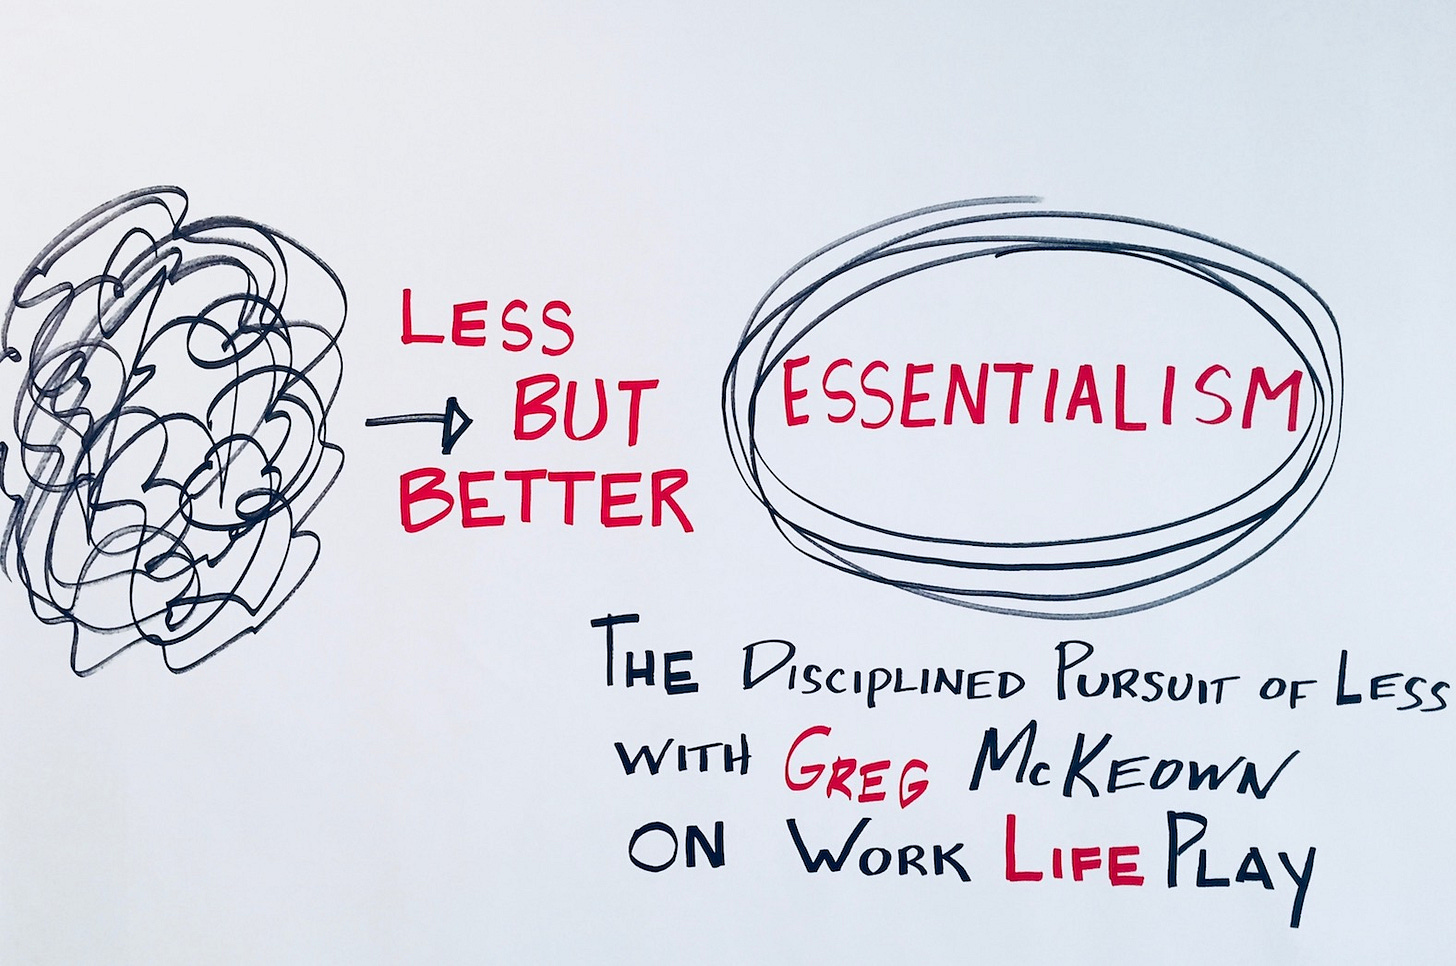 LESS
BUT
BETTER
ESSENTIALISM
THE DISCIPLINED PURSUIT OF LESS
WITH GREG MCKEOWN
ON WORK LIFE PLAY